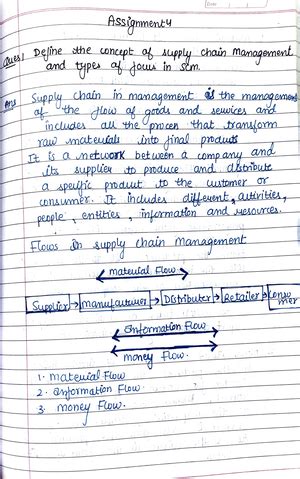 Date
Assignment 4
Ques 1 Define the concept of supply chain Management
and types of flows in scm.
Ans Supply chain in management is the management
of the flow of goods and services and
includes all the process that transform
raw materials into final products
It is a network between a company and
its supplier to produce and distribute
a specific product to the customer or
consumer. It includes different, activities,
people, entities, information and resources.
Flows in supply chain Management
material Flow
Supplier manufacturer Distributer Retailer Consumer
Information Flow
money Flow.
1. Material Flow
2. Information Flow
3. money Flow.